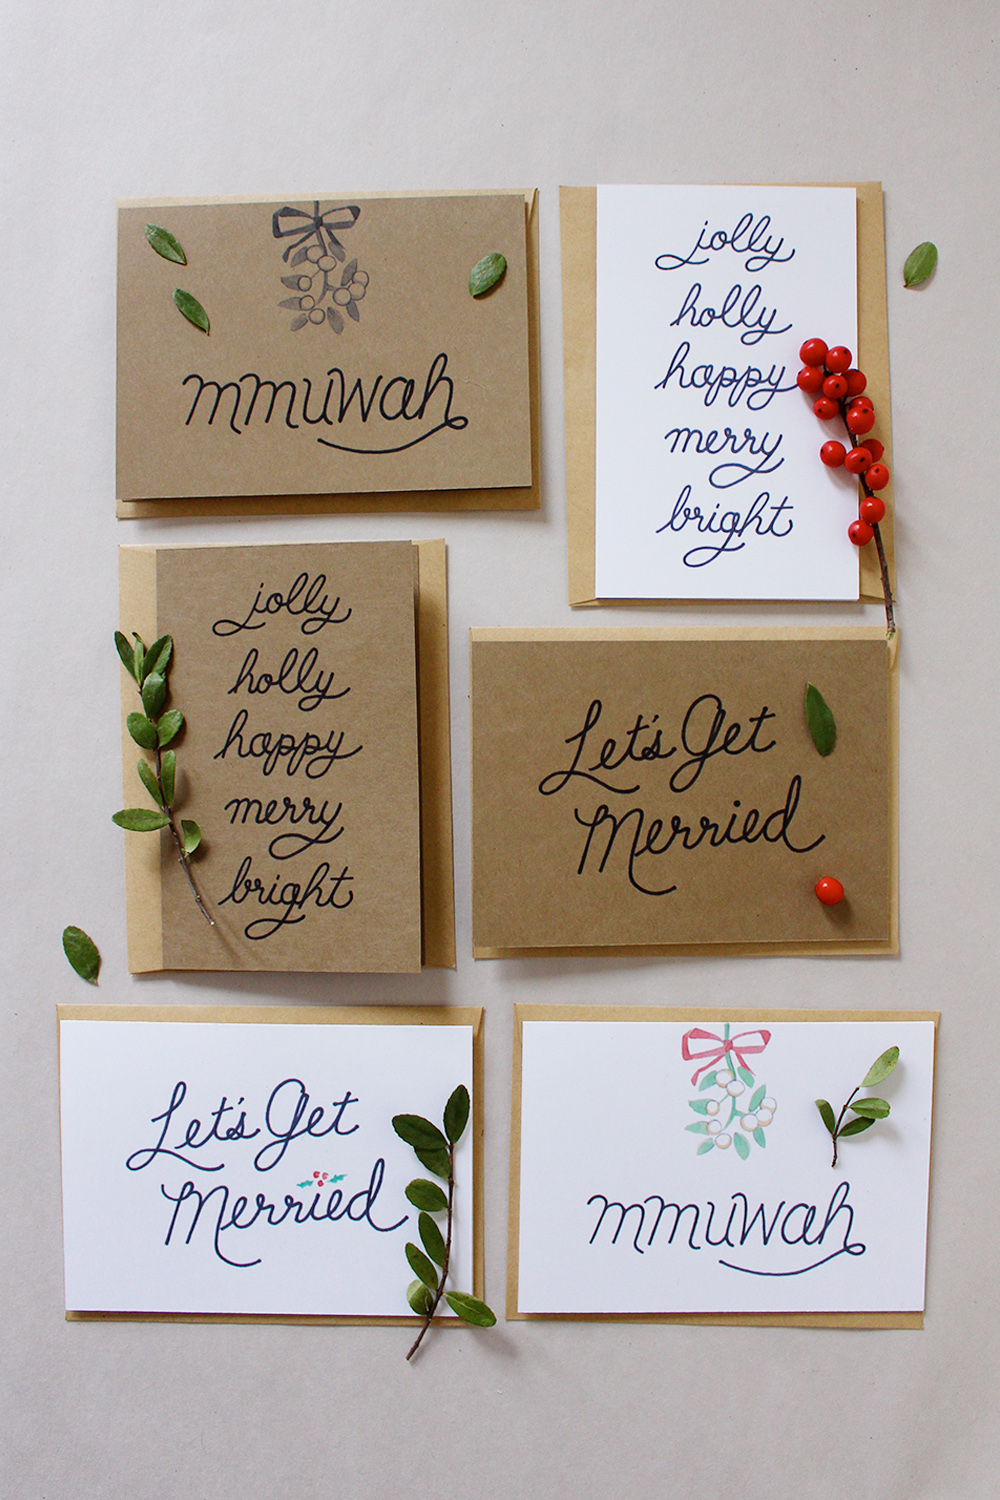 mmuwah
jolly
holly
happy
merry
bright
jolly
holly
happy
merry
bright
Let's Get
Merried
Let's Get
Merried
mmuwah